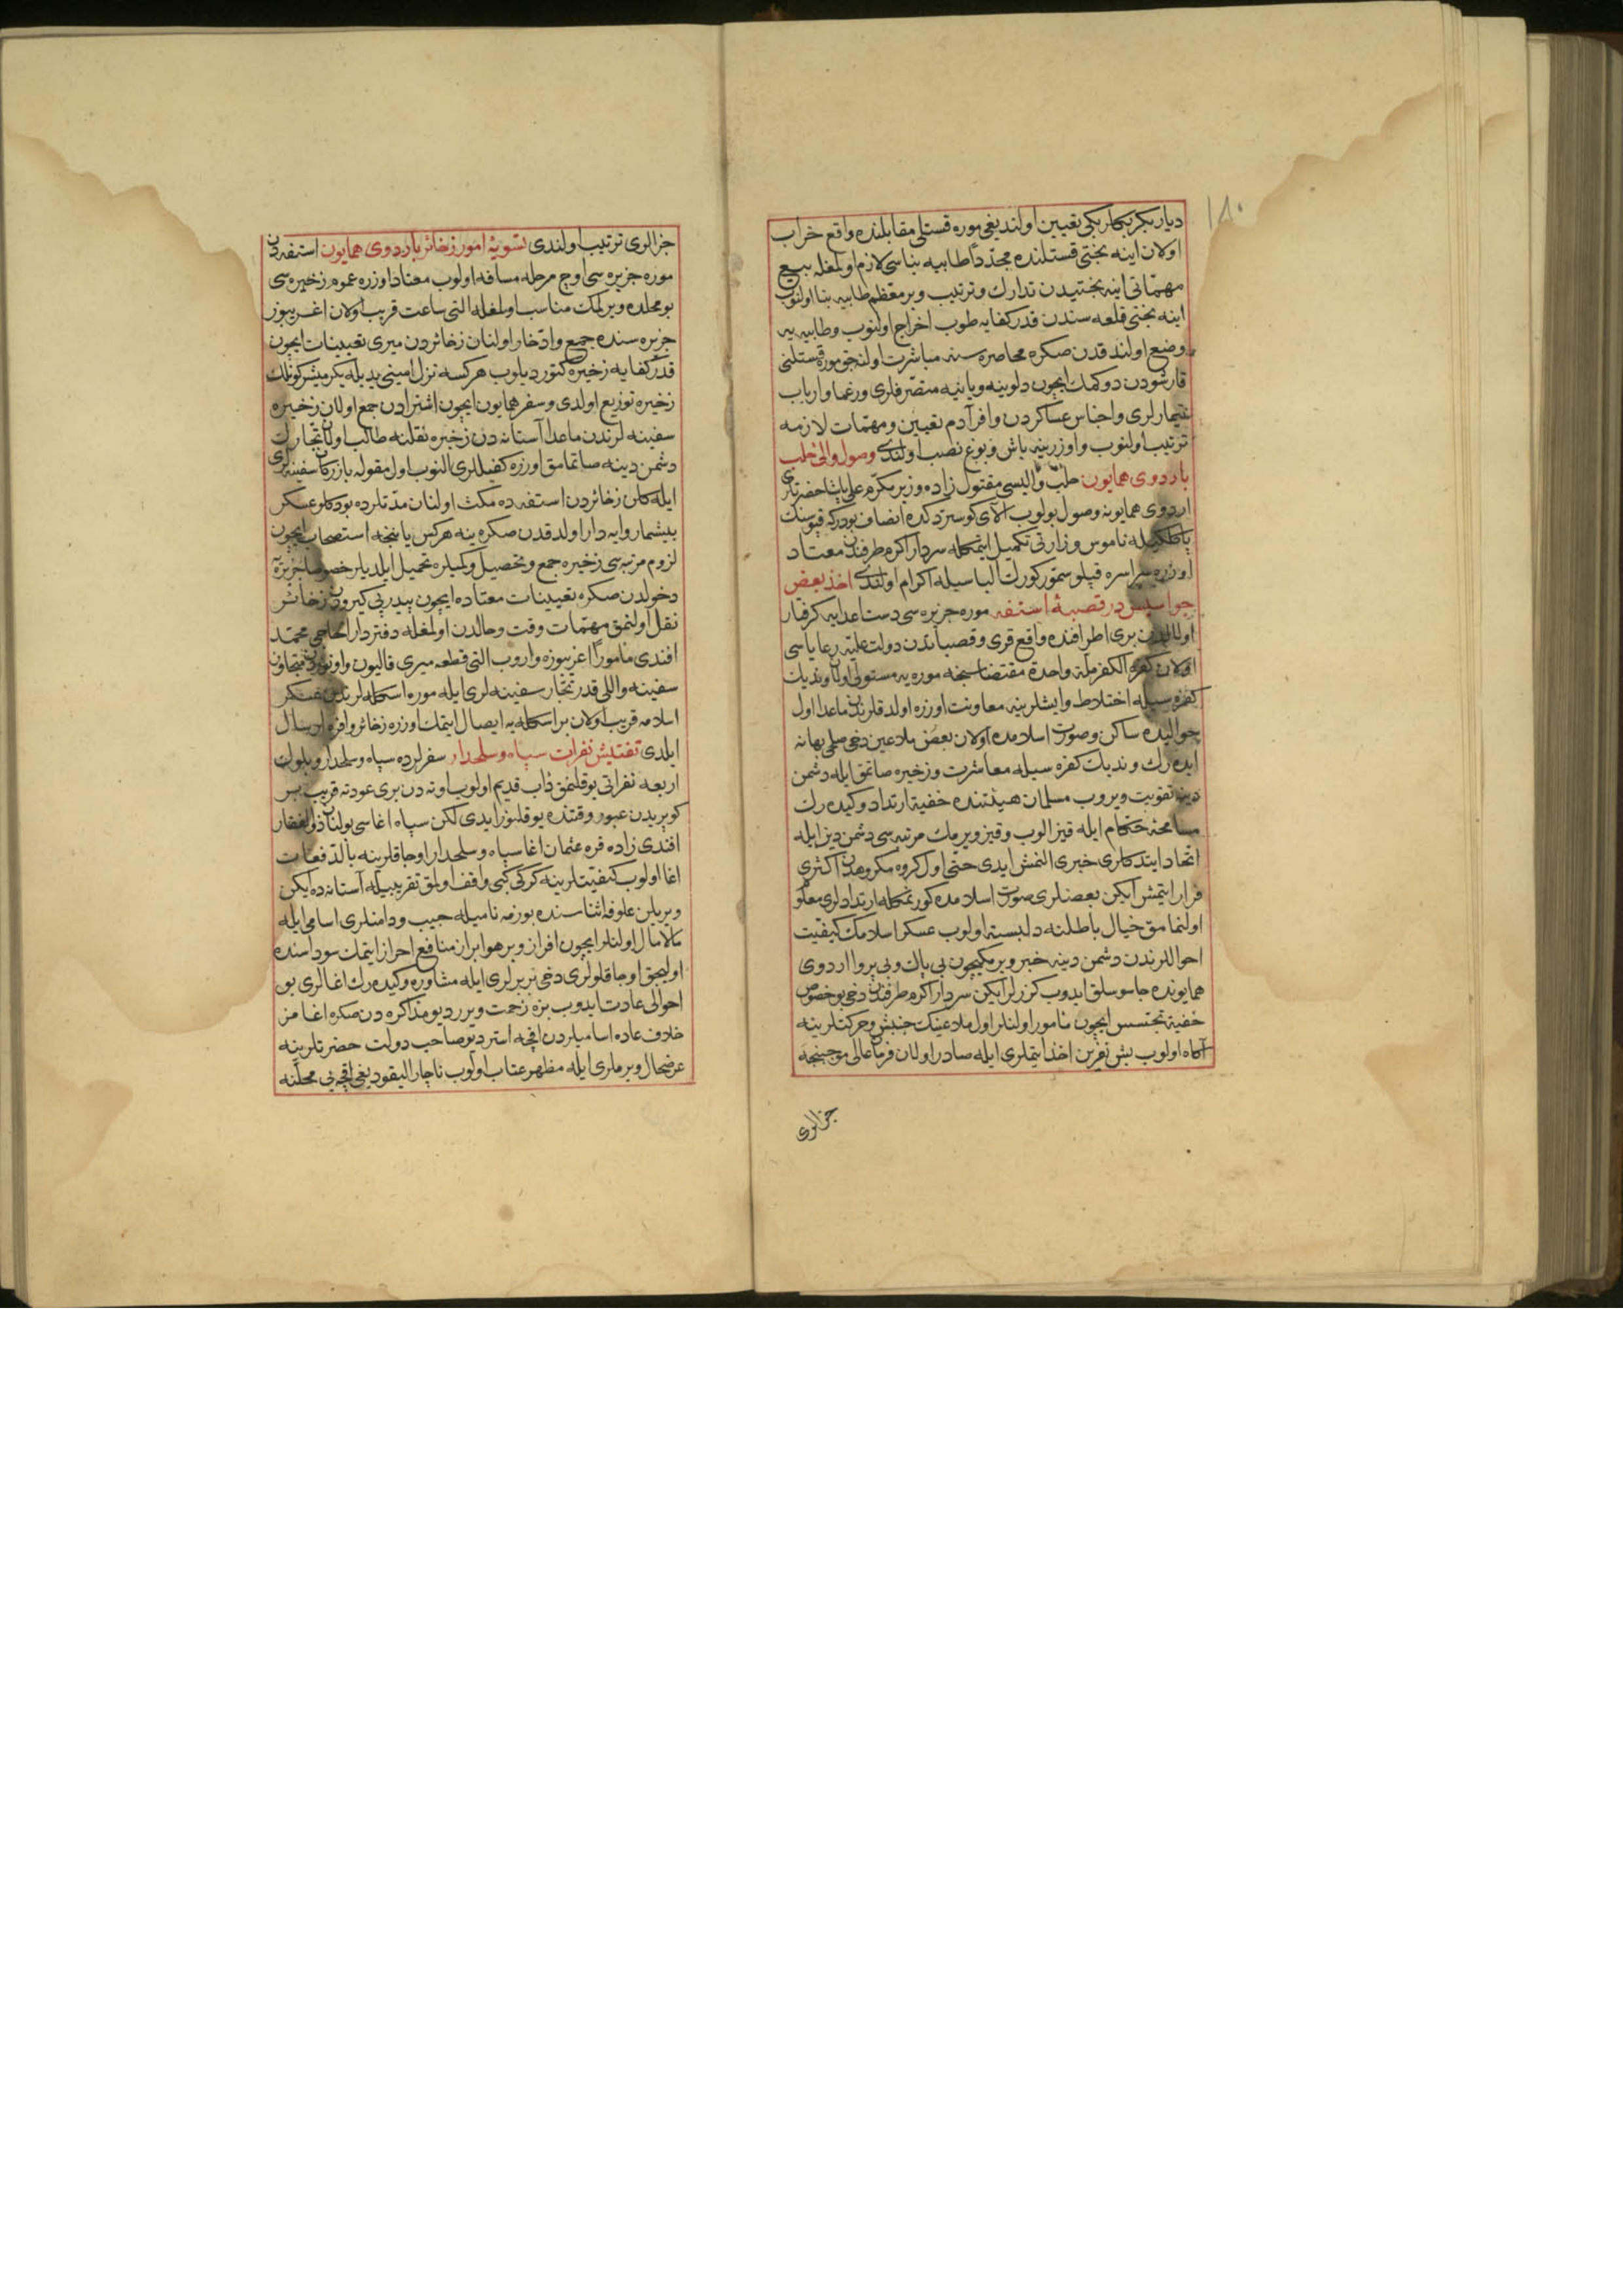 ١٨٠
دیار بکر بکلربکی تعیین اولندیغی موره قستلی مقابلنده واقع خراب
اولان اینه بختی قستلنده مجدداً طابیه بناسی لازم اولمغله بیع
مهماتی اینه بختیدن تدارك و ترتیب و بر معظم طابیه بنا اولنوب
اینه بختی قلعه سندن قدر کفایه طوب اخراج اولنوب و طابیه یه
وضع اولندقدن صکره محاصره سنه مباشرت اولنه جق موره قستلنی
قارشودن دوکمك ایچون دلوینه و یانیه متصرفلری و زعما و ارباب
تیمارلری و اجناس عساکردن وافر آدم تعیین و مهمات لازمه
ترتیب اولنوب و اوزرینه باش و بوغ نصب اولندی وصول والئ حلب
باردوی همایون حلب والیسی مقتول زاده وزیر مکرم علی پاشا حضرتلری
اردوی همایونه وصول بولوب آلای کوستردکده انصاف بودرکه قپوسنك
ناموس وزارتی تکمیل ایتمکله سردار اکرم طرفندن معتاد
اوزره سراسره قپلو سمور کورك الباسیله اکرام اولندی اخذ بعض
جواسیس در قصبۀ استفه موره جزیره سی دست اعدایه کرفتار
اولالیدن بری اطرافنده واقع قری و قصباتدن دولت علیه رعایاسی
اولان کفره الکفر ملة واحدة مقتضاسنجه موره یه مستولی اولان وندیك
کفره سیله اختلاط و ایشلرینه معاونت اوزره اولدقلرندن ماعدا اول
حوالیده ساکن و صورت اسلامده اولان بعض ملاعین دخی صلحی بهانه
ایده رك وندیك کفره سیله معاشرت و زخیره صاتمق ایله دشمن
دینه تقویت ویروب مسلمان هیئتنده خفیة ارتداد و کیده رك
مسامحۀ حکام ایله قیز الوب و قیز ویرمك مرتبه سی دشمن دین ایله
اتحاد ایتدکلری خبری النمش ایدی حتی اول کروه مکروهدن اکثری
فرار ایتمش ایکن بعضلری صورت اسلامده کورنمکله ارتدادلری معلوم
اولنمامق خیال باطلنه دلبسته اولوب عسکر اسلامك کیفیت
احواللرندن دشمن دینه خبر ویرمکیچون بی باك و بی پروا اردوی
همایونده جاسوسلق ایدوب کزرلر ایکن سردار اکرم طرفندن دخی بو خصوص
خفیة تجسس ایچون مأمور اولنلر اول ملاعینك جنبش و حرکتلرینه
آکاه اولوب بش نفرین اخذ ایتملری ایله صادر اولان فرمان عالی موجبنجه
جزالری
جزالری ترتیب اولندی تسویۀ امور زخائر باردوی همایون استفه دن
موره جزیره سی اوچ مرحله مسافه اولوب معتاد اوزره عموم زخیره سی
بو محلده ویرلمك مناسب اولمغله التی ساعت قریب اولان اغریبوز
جزیره سنده جمع و ادخار اولنان زخائردن میری تعیینات ایچون
قدر کفایه زخیره کتوردیلوب هرکسه نزل امینی یدیله یکرمیشر کونلك
زخیره توزیع اولدی و سفر همایون ایچون اشترادن جمع اولان زخیره
سفینه لرندن ماعدا آستانه دن زخیره نقلنه طالب اولان تجارك
دشمن دینه صاتمامق اوزره کفیللری النوب اول مقوله بازرکان سفینه لری
ایله کلن زخائردن استفه ده مکث اولنان مدتلرده بو دکلو عسکر
بیشمار وایه دار اولدقدن صکره ینه هرکس یاننجه استصحاب ایچون
لزوم مرتبه سی زخیره جمع و تحصیل و کمیلره تحمیل ایلدیلر خصوصا جزیره یه
دخولدن صکره تعیینات معتاده ایچون پیدرپی کیرودن زخائر
نقل اولنمق مهمات وقت و حالدن اولمغله دفتردار الحاجی محمد
افندی مأموراً اغریبوزه واروب التی قطعه میری قالیون و اوتوزدن متجاوز
سفینه و اللی قدر تجار سفینه لری ایله موره اسکله لرندن عسکر
اسلامه قریب اولان بر اسکله یه ایصال ایتمك اوزره زخائر وافره ارسال
ایلدی تفتیش نفرات سپاه و سلحدار سفرلرده سپاه و سلحدار و بلوك
اربعه نفراتی یوقلنمق دأب قدیم اولوب اوته دن بری عودته قریب بر
کوپریدن عبور وقتنده یوقلنور ایدی لکن سپاه اغاسی بولنان ذوالفقار
افندی زاده قره عثمان اغا سپاه و سلحدار اوجاقلرینه بالدفعات
اغا اولوب کیفیتلرینه کرکی کبی واقف اولمق تقریبیله آستانه ده ایکن
ویریلن علوفه اثناسنده یوزمه نامیله جیب و دامنلری اسامی ایله
مالامال اولنلر ایچون افراز و بر هوا براز منافع احراز ایتمك سوداسنده
اولیجق اوجاقلولری دخی بربرلری ایله مشاوره و کیده رك اغالری بو
احوالی عادت ایدوب بزه زحمت ویرر دیو مذاکره دن صکره اغامز
خلاف عاده اسامیلردن اقچه استر دیو صاحب دولت حضرتلرینه
عرضحال ویرملری ایله مظهر عتاب اولوب ناچار الیقودیغی اقچه یی محلنه